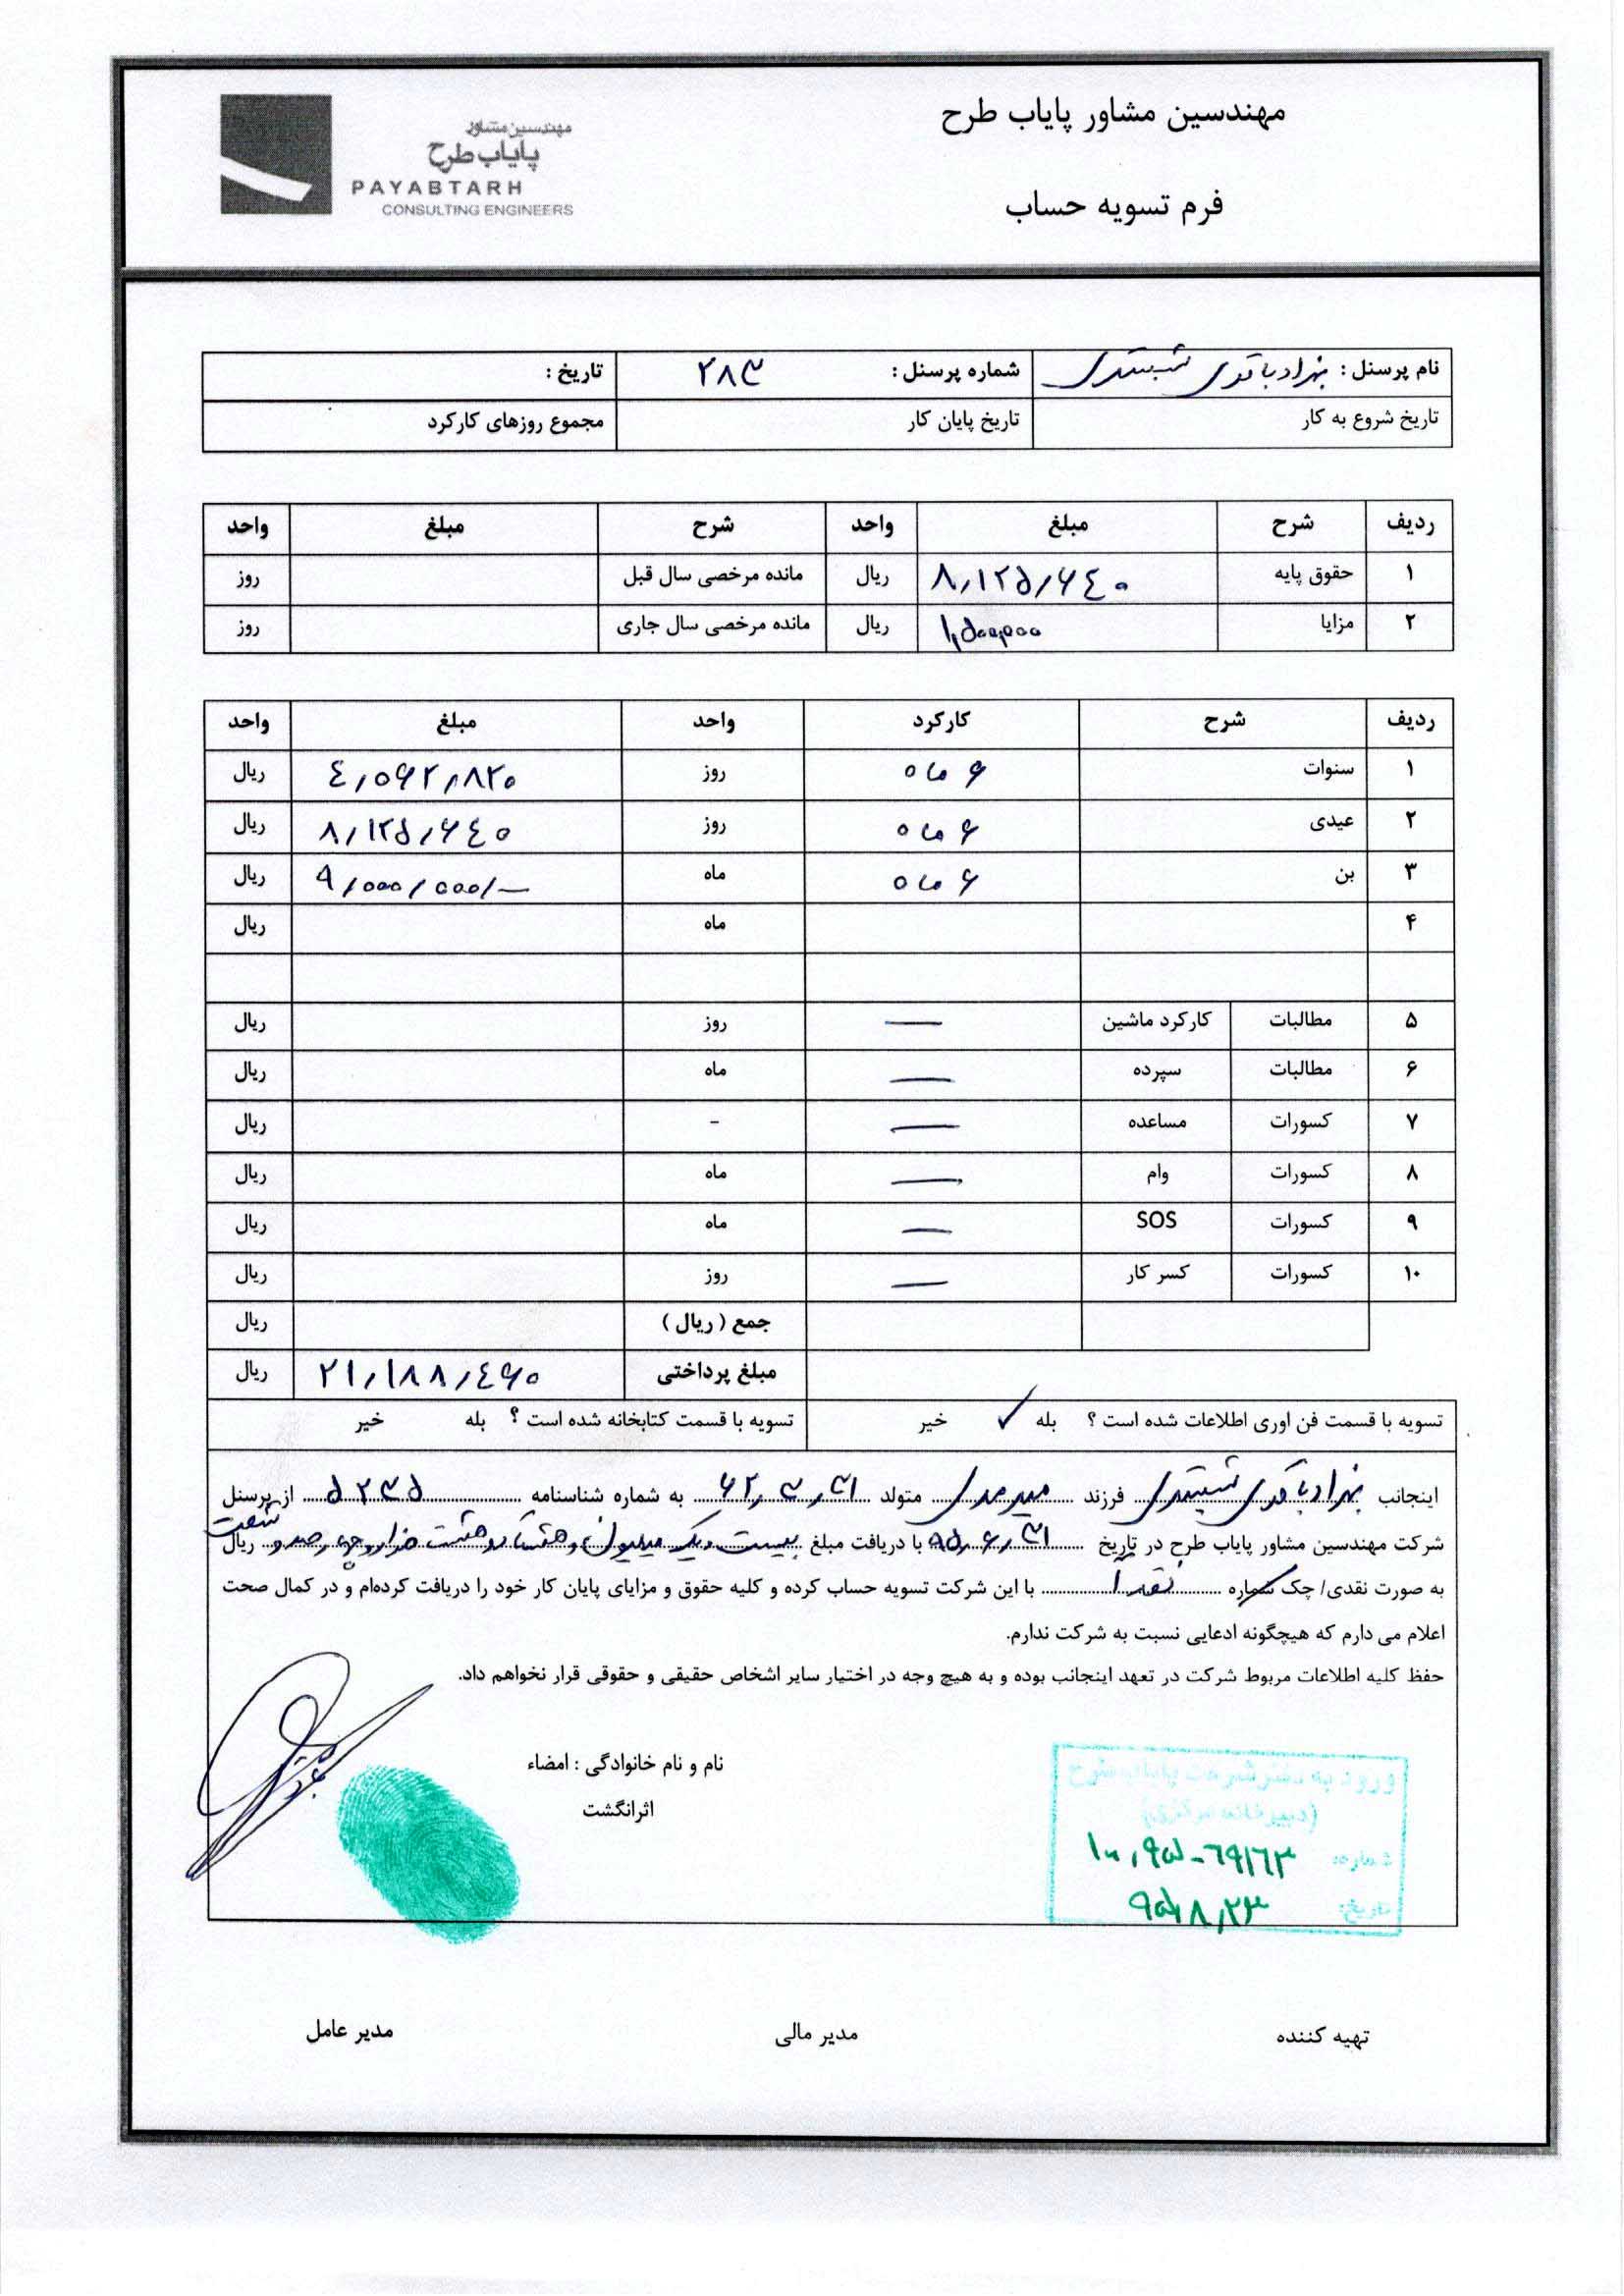 مهندسین مشاور پایاب طرح
فرم تسویه حساب
مهندسین مشاور
پایاب طرح
PAYABTARH
CONSULTING ENGINEERS
نام پرسنل : بهزاد باقری شبستری شماره پرسنل : ۲۸۳ تاریخ :
تاریخ شروع به کار تاریخ پایان کار مجموع روزهای کارکرد
ردیف شرح مبلغ واحد شرح مبلغ واحد
۱ حقوق پایه ۸,۱۲۵,۶۴۰ ریال مانده مرخصی سال قبل روز
۲ مزایا ۱,۵۰۰,۰۰۰ ریال مانده مرخصی سال جاری روز
ردیف شرح کارکرد واحد مبلغ واحد
۱ سنوات ۶ ماه روز ۴,۰۶۲,۸۲۰ ریال
۲ عیدی ۶ ماه روز ۸,۱۲۵,۶۴۰ ریال
۳ بن ۶ ماه ماه ۹/۰۰۰/۰۰۰/- ریال
۴ ماه ریال
۵ مطالبات کارکرد ماشین — روز ریال
۶ مطالبات سپرده — ماه ریال
۷ کسورات مساعده — - ریال
۸ کسورات وام — ماه ریال
۹ کسورات SOS — ماه ریال
۱۰ کسورات کسر کار — روز ریال
جمع ( ریال ) ریال
مبلغ پرداختی ۲۱,۱۸۸,۴۶۰ ریال
تسویه با قسمت فن اوری اطلاعات شده است ؟ بله ✓ خیر تسویه با قسمت کتابخانه شده است ؟ بله خیر
اینجانب بهزاد باقری شبستری فرزند متولد ۶۲,۳,۳۱ به شماره شناسنامه ۵۲۳۵ از پرسنل
شرکت مهندسین مشاور پایاب طرح در تاریخ ۹۵,۶,۳۱ با دریافت مبلغ بیست و یک میلیون و هشتاد و هشت هزار و چهارصد و شصت ریال
به صورت نقدی/ چک شماره نقداً با این شرکت تسویه حساب کرده و کلیه حقوق و مزایای پایان کار خود را دریافت کرده‌ام و در کمال صحت
اعلام می دارم که هیچگونه ادعایی نسبت به شرکت ندارم.
حفظ کلیه اطلاعات مربوط شرکت در تعهد اینجانب بوده و به هیچ وجه در اختیار سایر اشخاص حقیقی و حقوقی قرار نخواهم داد.
نام و نام خانوادگی : امضاء
اثرانگشت
ورود به دفتر شرکت پایاب طرح
(دبیرخانه مرکزی)
شماره: ۱۰۰,۹۵-۶۹۱۶۳
تاریخ: ۹۵,۸,۲۳
تهیه کننده مدیر مالی مدیر عامل